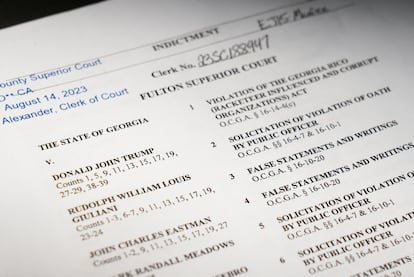 EJPS-Media
INDICTMENT
Clerk No. 23SC188947
FULTON SUPERIOR COURT
ounty Superior Court
August 14, 2023
Alexander, Clerk of Court
THE STATE OF GEORGIA
v.
DONALD JOHN TRUMP
Counts 1, 5, 9, 11, 13, 15, 17, 19,
27-29, 38-39
RUDOLPH WILLIAM LOUIS
GIULIANI
Counts 1-3, 6-7, 9, 11, 13, 15, 17, 19,
23-24
JOHN CHARLES EASTMAN
Counts 1-2, 9, 11, 13, 15, 17, 19, 27
RANDALL MEADOWS
1 VIOLATION OF THE GEORGIA RICO
(RACKETEER INFLUENCED AND CORRUPT
ORGANIZATIONS) ACT
O.C.G.A. § 16-14-4(c)
2 SOLICITATION OF VIOLATION OF OATH
BY PUBLIC OFFICER
O.C.G.A. §§ 16-4-7 & 16-10-1
3 FALSE STATEMENTS AND WRITINGS
O.C.G.A. § 16-10-20
4 FALSE STATEMENTS AND WRITINGS
O.C.G.A. § 16-10-20
5 SOLICITATION OF VIOLATION OF
BY PUBLIC OFFICER
O.C.G.A. §§ 16-4-7 & 16-10-1
6 SOLICITATION OF VIOLATION
BY PUBLIC OFFICER
O.C.G.A. §§ 16-4-7 & 16-10-1